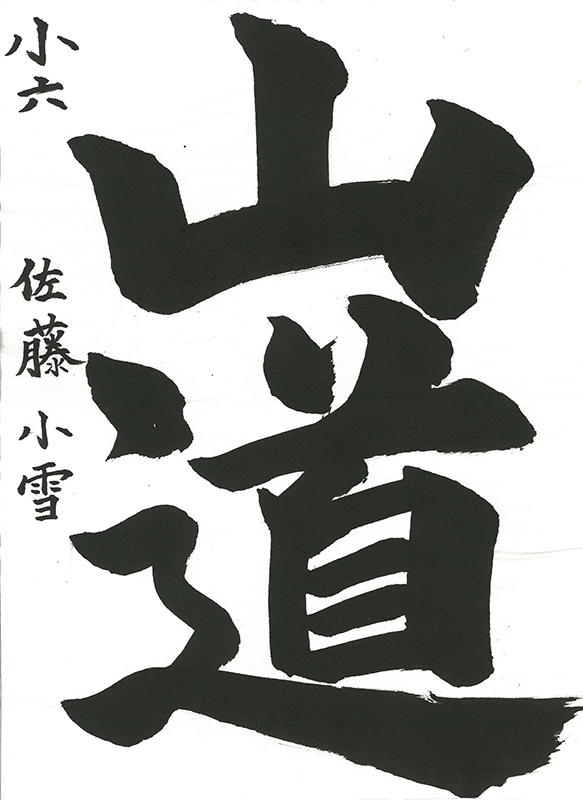 山道
小六 佐藤小雪